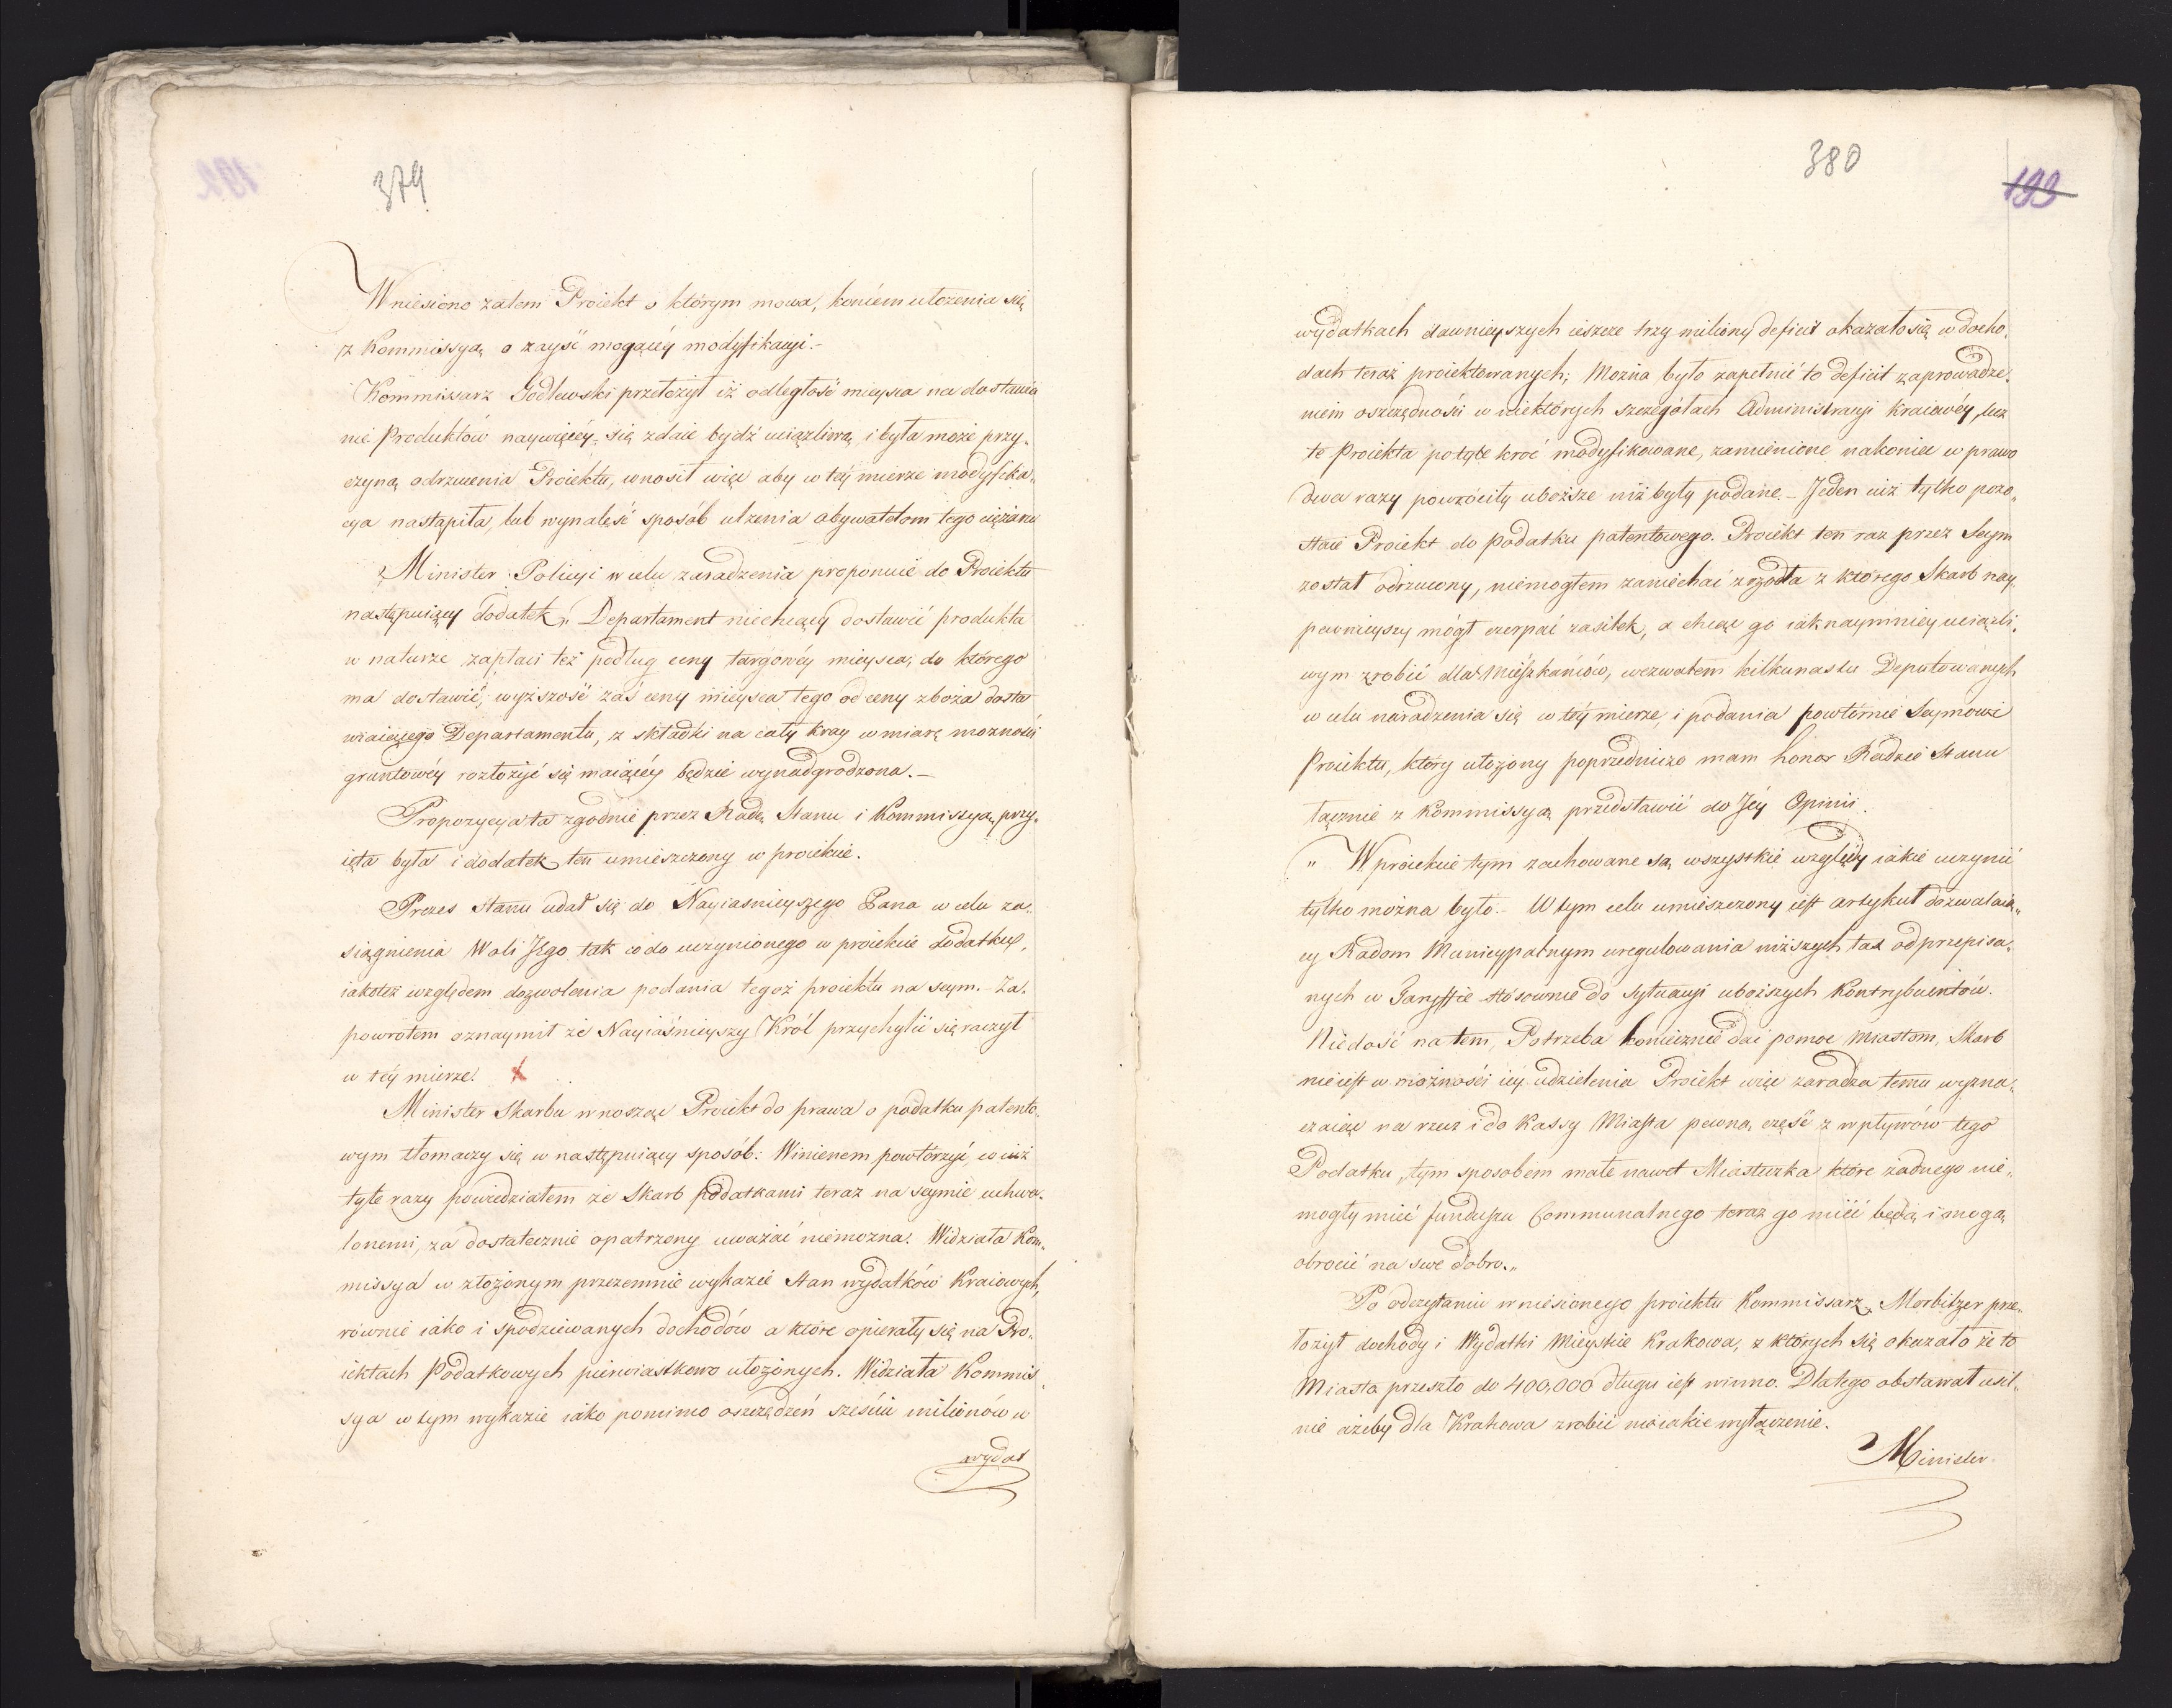 379
Wniesiono zatem Proiekt o którym mowa, koniem ułożenia się
z Kommissyą o zayść mogącéy modyfikacyi.-
Kommissarz Godlewski przełożył iż odległość mieysca na dostawia
nie Produktów naywięcéy się zdaie bydź uciążliwą i była może przy„
czyną odrzucenia Proiektu, wnosił więc aby w téy mierze modyfika„
cya nastąpiła, lub wynaleść sposób ulżenia obywatelom tego ciężaru
Minister Policyi w celu zaradzenia proponuie do Proiektu
następuiący dodatek „Departament niechcący dostawić produkta
w naturze zapłaci też podług ceny targowéy mieysca, do którego
ma dostawić, wyższość zaś ceny mieysca tego od ceny zboża dosta
wiaiącego Departamentu, z składki na cały kray w miarę możności
gruntowéy rozłożyć się maiącéy będzie wynadgrodzona.—
Propozycya ta zgodnie przez Radę Stanu i Kommissyą przy„
ięta była i dodatek ten umieszczony w proiekcie.
Prezes Stanu udał się do Nayiaśnieyszego Pana w celu za„
siągnienia Woli Jego tak co do uczynionego w proiekcie dodatku,
iakoteż względem dozwolenia podania tegoż proiektu na seym.- Za„
powrotem oznaymił że Nayiaśnieyszy Król przychylić się raczył
w téy mierze.
Minister Skarbu wnosząc Proiekt do prawa o podatku patento„
wym tłomaczy się w następuiący sposób: Winienem powtórzyć, co iuż
tyle razy powiedziałem że Skarb podatkami teraz na seymie uchwa„
lonemi, za dostatecznie opatrzony uważać niemożna. Widziała Kom„
missya w złożonym przezemnie wykazie stan wydatków Kraiowych,
równie iako i spodziewanych dochodów a które opierały się na Pro„
iektach Podatkowych pierwiastkowo ułożonych. Widziała Kommis
sya w tym wykazie iako pomimo oszczędzeń sześciu milionów w
wydat
380
193
wydatkach dawnieyszych ieszcze trzy miliony deficit okazało się w docho„
dach teraz proiektowanych; Można było zapełnić to deficit zaprowadze„
niem oszczędności w niektórych szczegółach Administracyi kraiowéy, lecz
te Proiekta potyle kroć modyfikowane, zamienione nakoniec w prawo
dwa razy powróciły uboższe niż były podane.- Jeden iuż tylko pozo„
staie Proiekt do podatku patentowego. Proiekt ten raz przez Seym
został odrzucony, niemogłem zaniechać zrzodła z którego Skarb nay„
pewnieyszy mógł czerpać zasiłek, a chcąc go iaknaymniey uciążli„
wym zrobić dla Mieszkańców, wezwałem kilkunastu Deputowanych
w celu naradzenia się w téy mierze, i podania powtórnie Seymowi
Proiektu, który ułożony poprzedniczo mam honor Radzie Stanu
łącznie z Kommissyą przedstawić do Jéy Opinii.
„ W proiekcie tym zachowane są wszystkie względy iakie uczynić
tylko można było.- W tym celu umieszczony iest artykuł dozwalaią„
cy Radom Municypalnym uregulowania niższych tax od przepisa„
nych w Taryffie stósownie do sytuacyi uboższych Kontrybuentów.
Niedość na tem, Potrzeba koniecznie dać pomoc Miastom, Skarb
nie iest w możności iéy udzielenia Proiekt więc zaradza temu wyzna„
czaiąc na rzecz i do Kassy Miasta pewną część z wpływów tego
Podatku, tym sposobem małe nawet Miasteczka które żadnego nie„
mogły mieć funduszu Communalnego teraz go mieć będą i mogą
obrócić na swe dobro.„
Po odczytaniu wniesionego proiektu Kommissarz Morbitzer prze„
łożył dochody i Wydatki Mieyskie Krakowa, z których się okazało że to
Miasto przeszło do 400,000 długu iest winno. Dlatego obstawał usil„
nie ażeby dla Krakowa zrobić nieiakie wyłączenie.
Minister